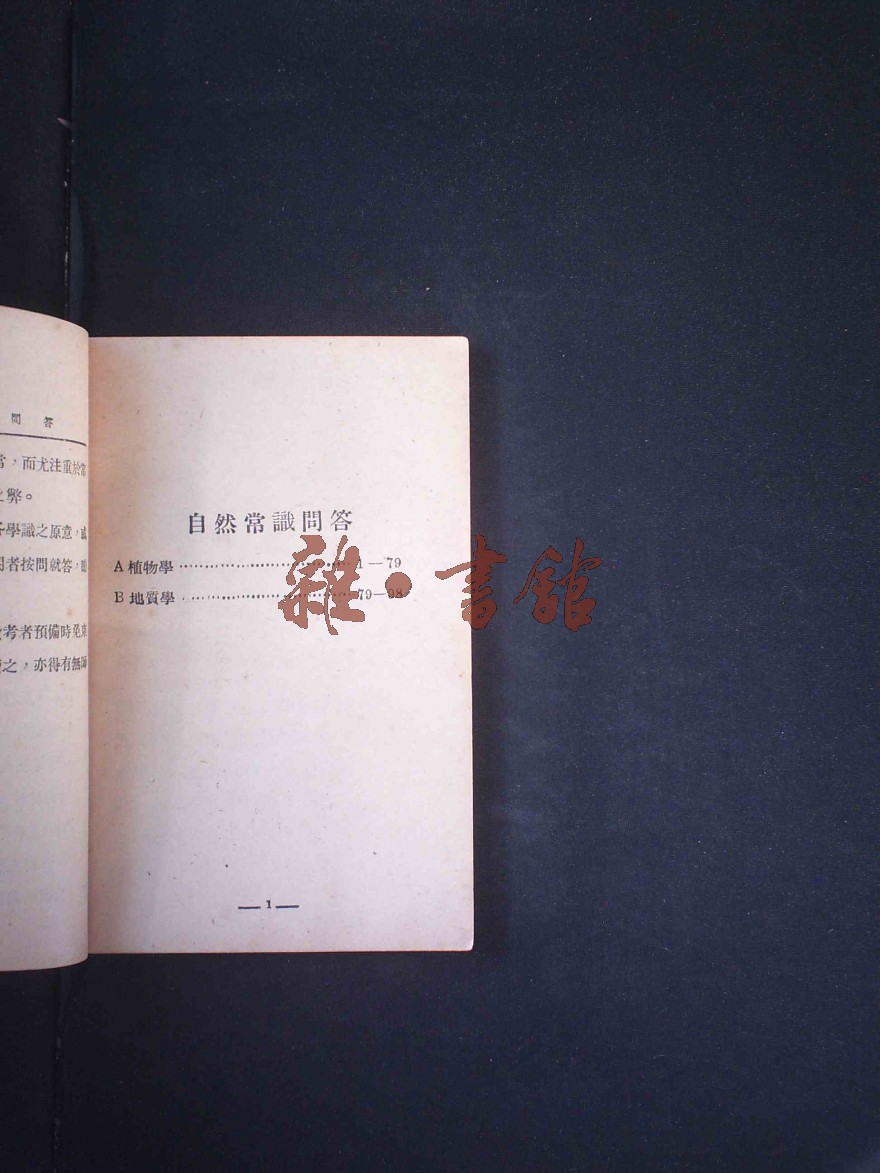 問答
常，而尤注重於常
之弊。
學識之原意，或
者按問就答，
考者預備時免東
之，亦得有無師
自然常識問答
A 植物學 1—79
B 地質學 79—98
— 1 —
雜·書館